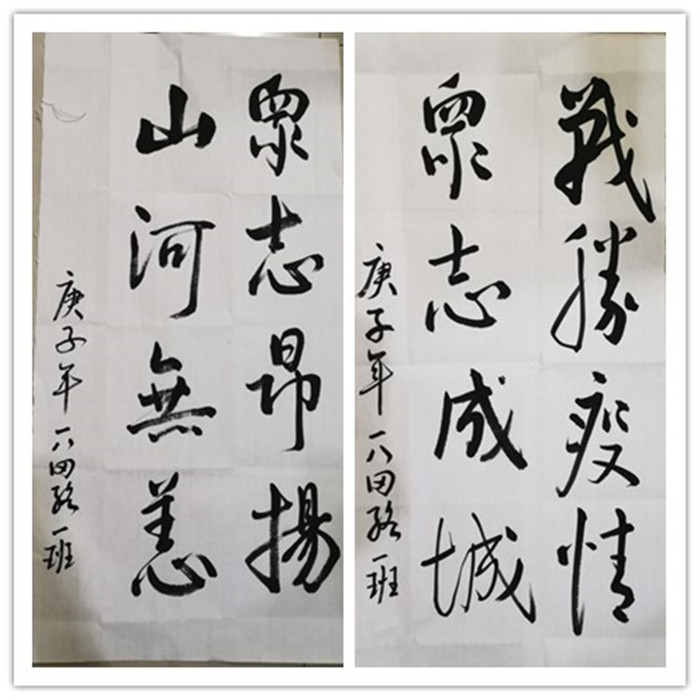 眾志昂揚
山河無恙
庚子年 一八田路一班
戰勝疫情
眾志成城
庚子年 一八田路一班